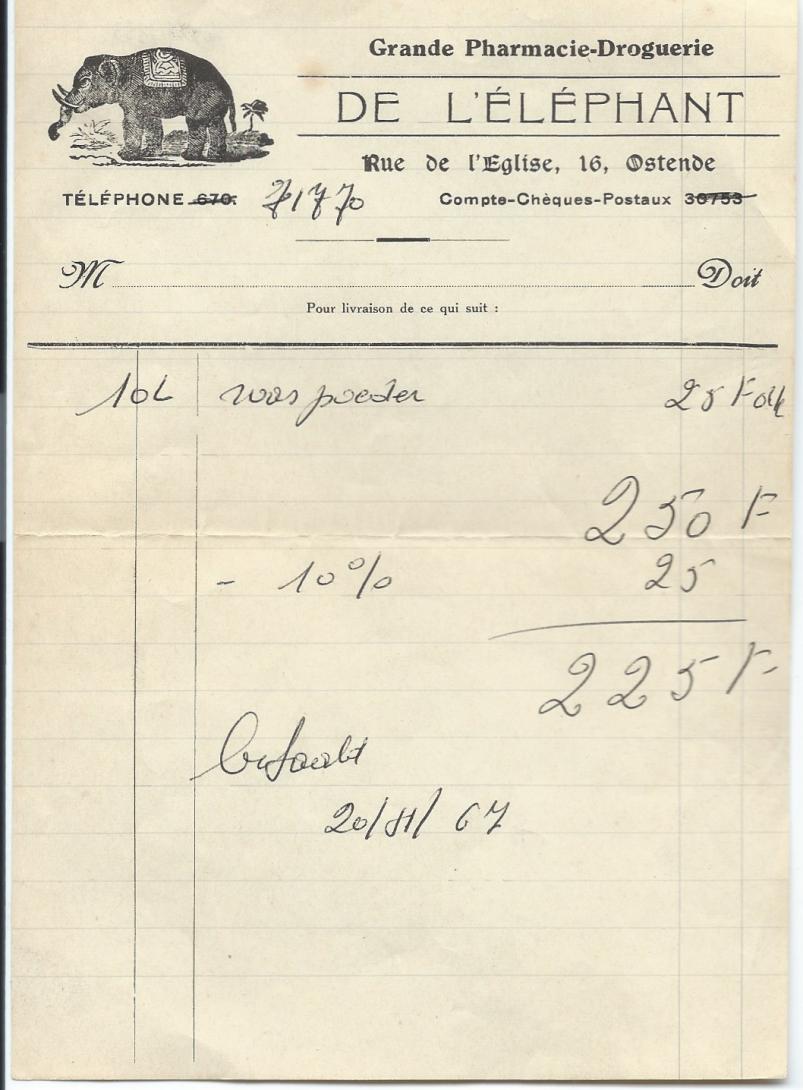 Grande Pharmacie-Droguerie
DE L'ÉLÉPHANT
Rue de l'Eglise, 16, Ostende
TÉLÉPHONE 670. 71770 Compte-Chèques-Postaux 30753
M Doit
Pour livraison de ce qui suit :
10L was poeder 25 F
250 F
- 10% 25
225 F
20/11/67